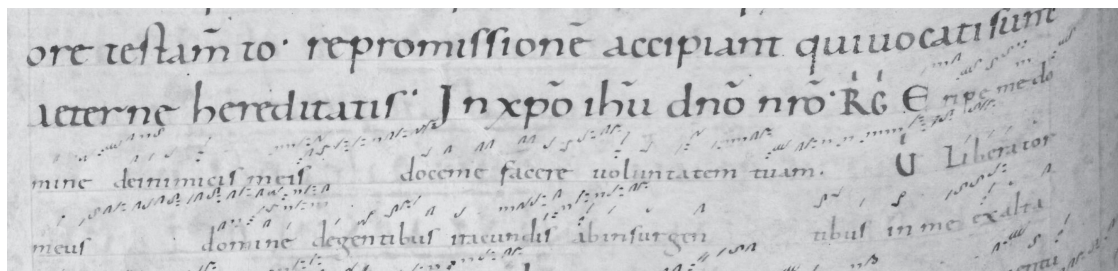 ore testam̄ to· repromissionē accipiant qui uocati sunt
aeterne hereditatis· In xp̄o ih̄u dn̄o nr̄o· RG Eripe me do
mine de inimicis meis doce me facere uoluntatem tuam. V Liberator
meus domine de gentibus iracundis ab insurgen tibus in me exalta